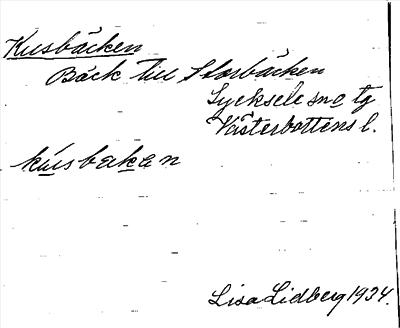 Kusbäcken
Bäck till Storbäcken
Lycksele sn o tg
Västerbottens l.
kusbakan
Lisa Lidberg 1934.